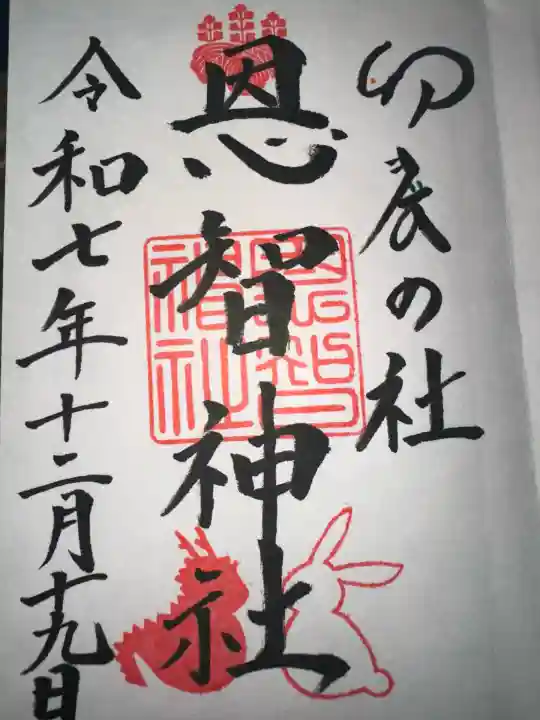 卯辰の社
恩智神社
恩智神社
令和七年十二月十九日